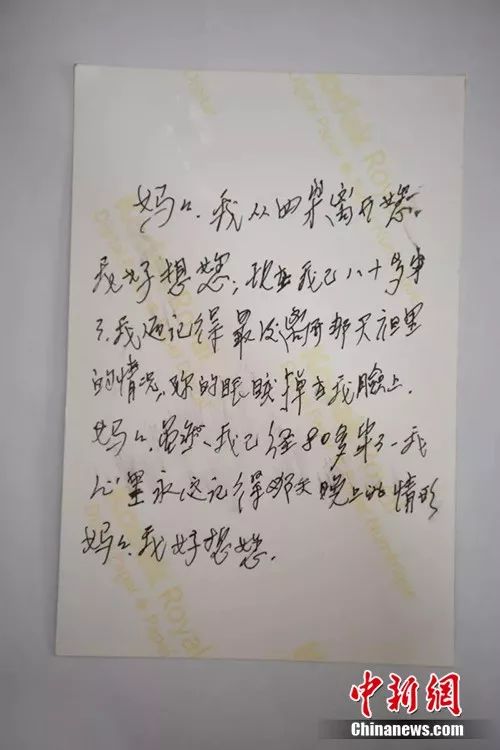 妈々.我从四岁离开您.
我好想您;现在我已八十多年
了.我还记得最后离开那天里
的情况,你的眼泪掉在我臉上.
妈々.虽然、我已经80多年了-我
心里永远记得那天晚上的情形
妈々.我好想您.
Kodak Royal
Digital Paper
中新网
Chinanews.com